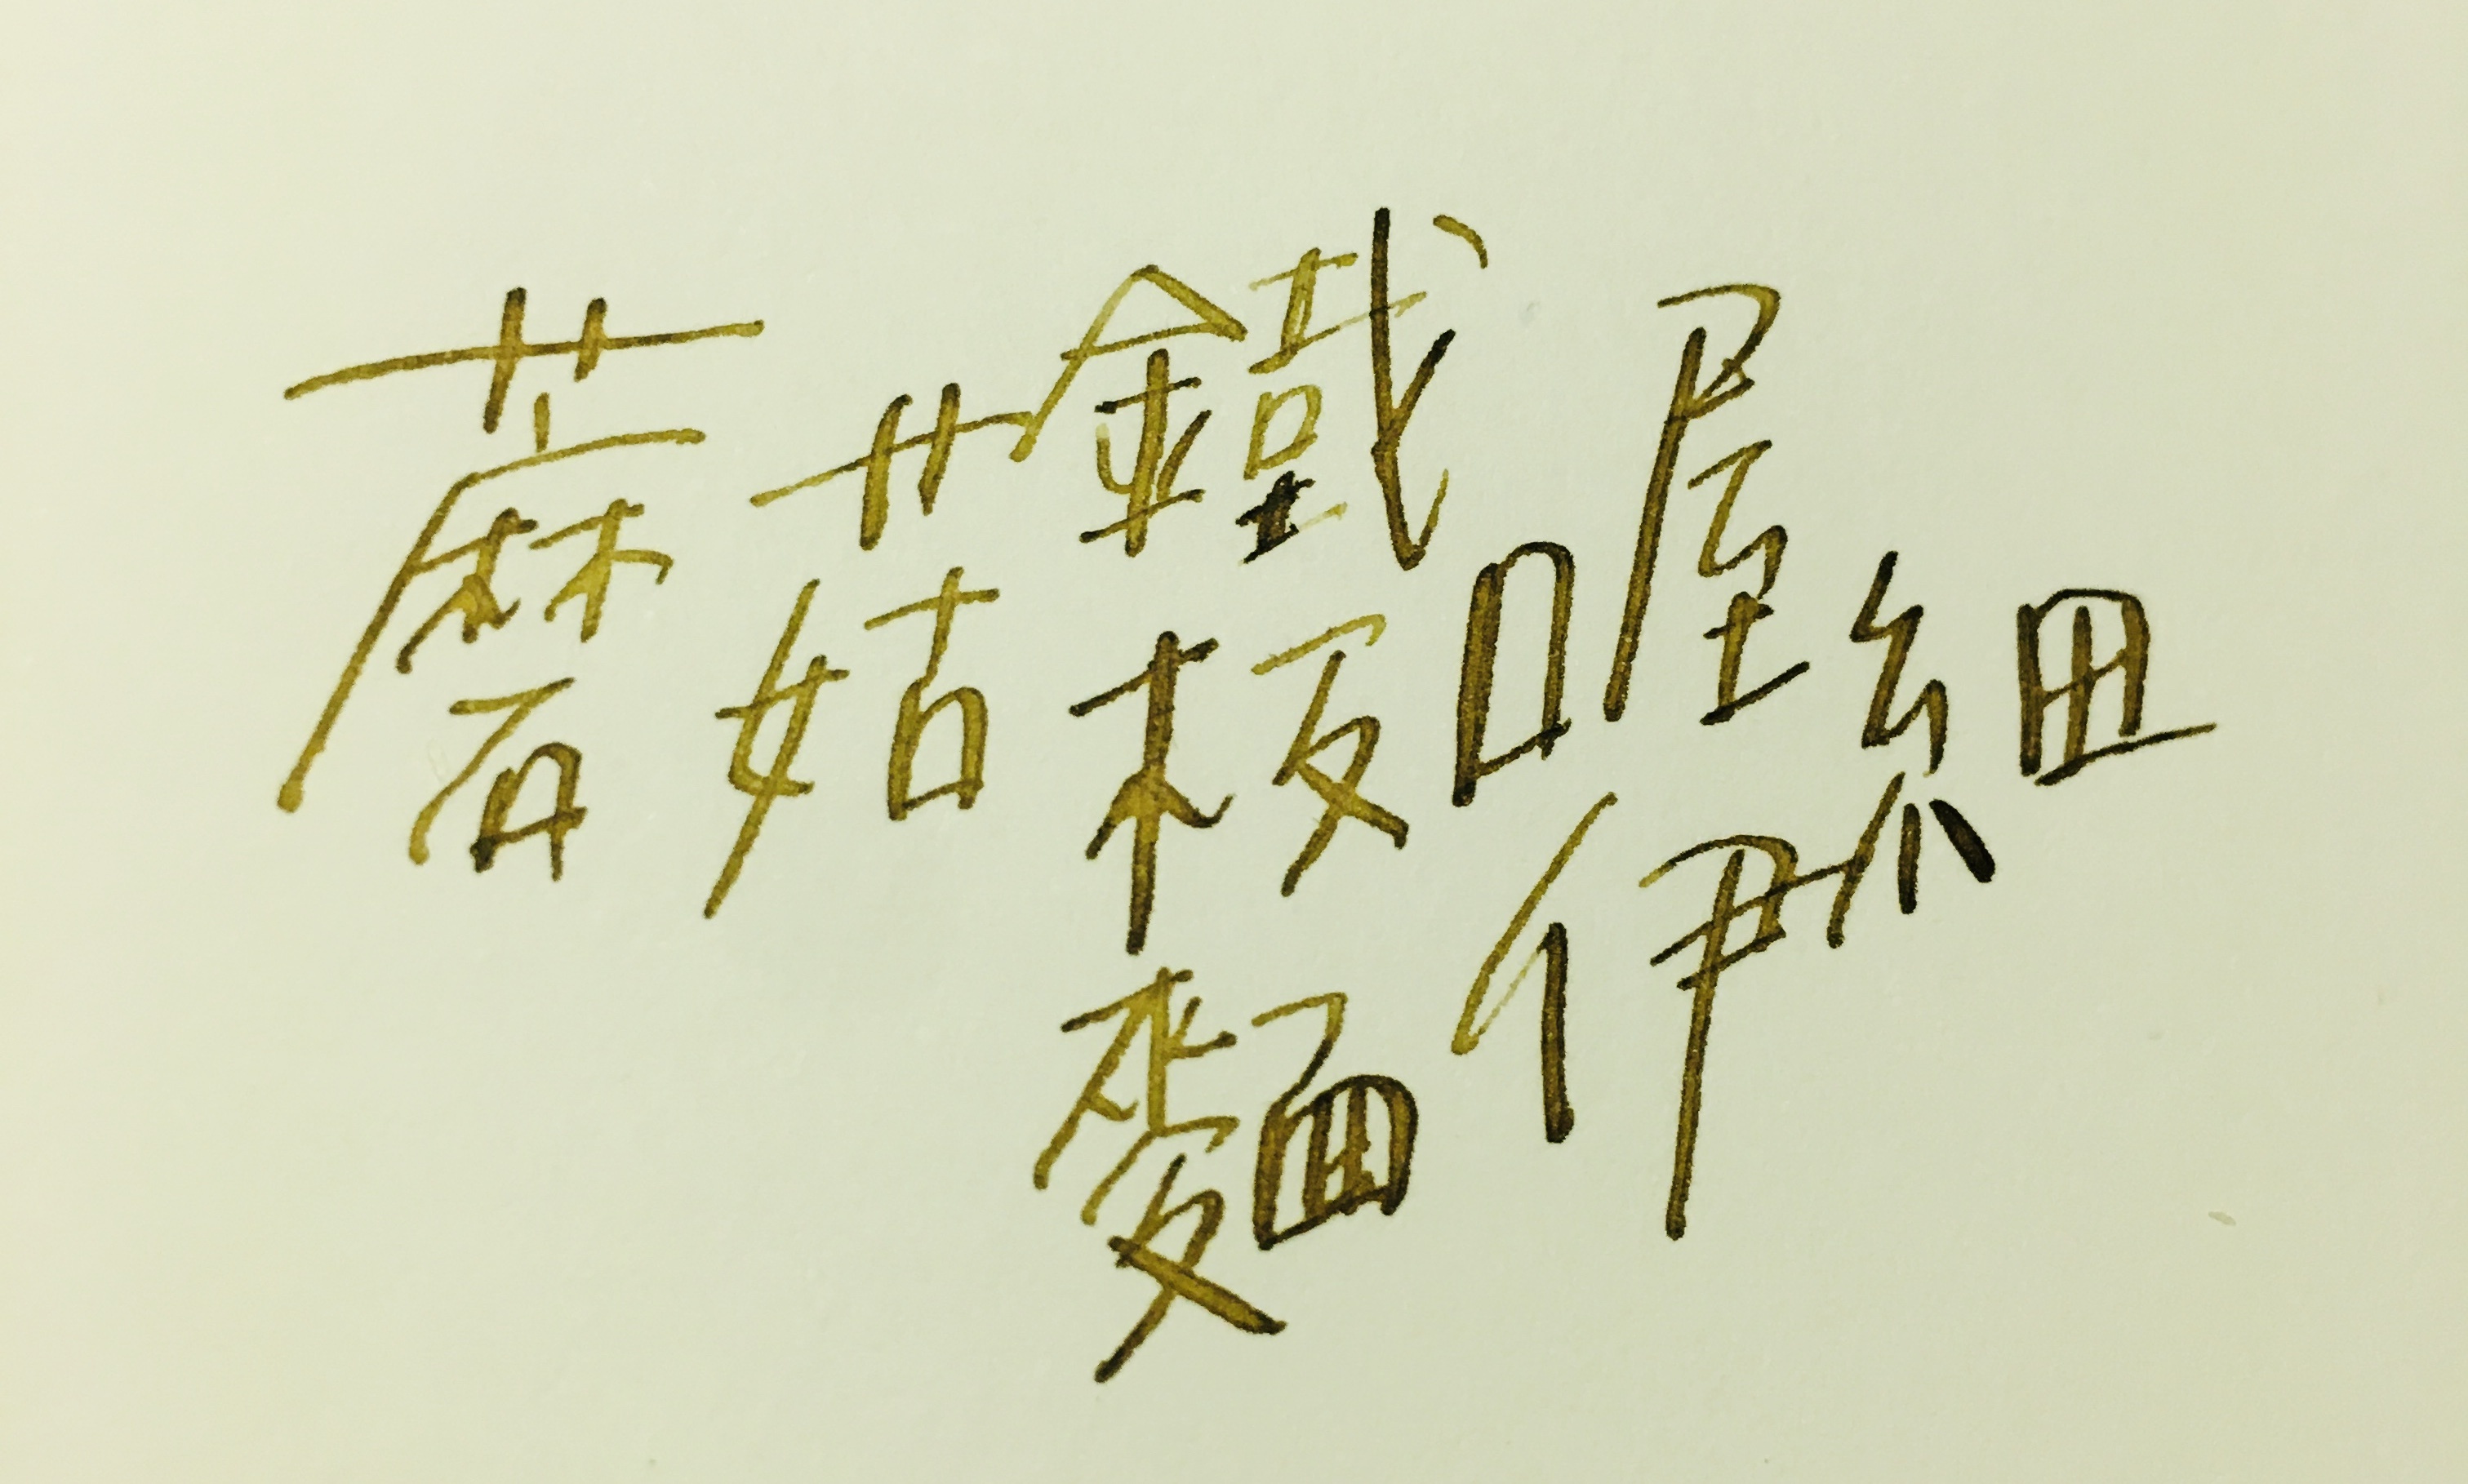 蘑菇
鐵板麵
喔伊細